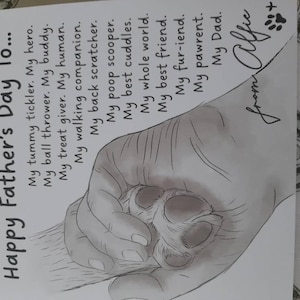 Happy Father's Day To...
My tummy tickler. My hero.
My ball thrower. My buddy.
My treat giver. My human.
My walking companion.
My back scratcher.
My poop scooper.
My best cuddles.
My whole world.
My best friend.
My fur-iend.
My pawrent.
My Dad.
from Alfie